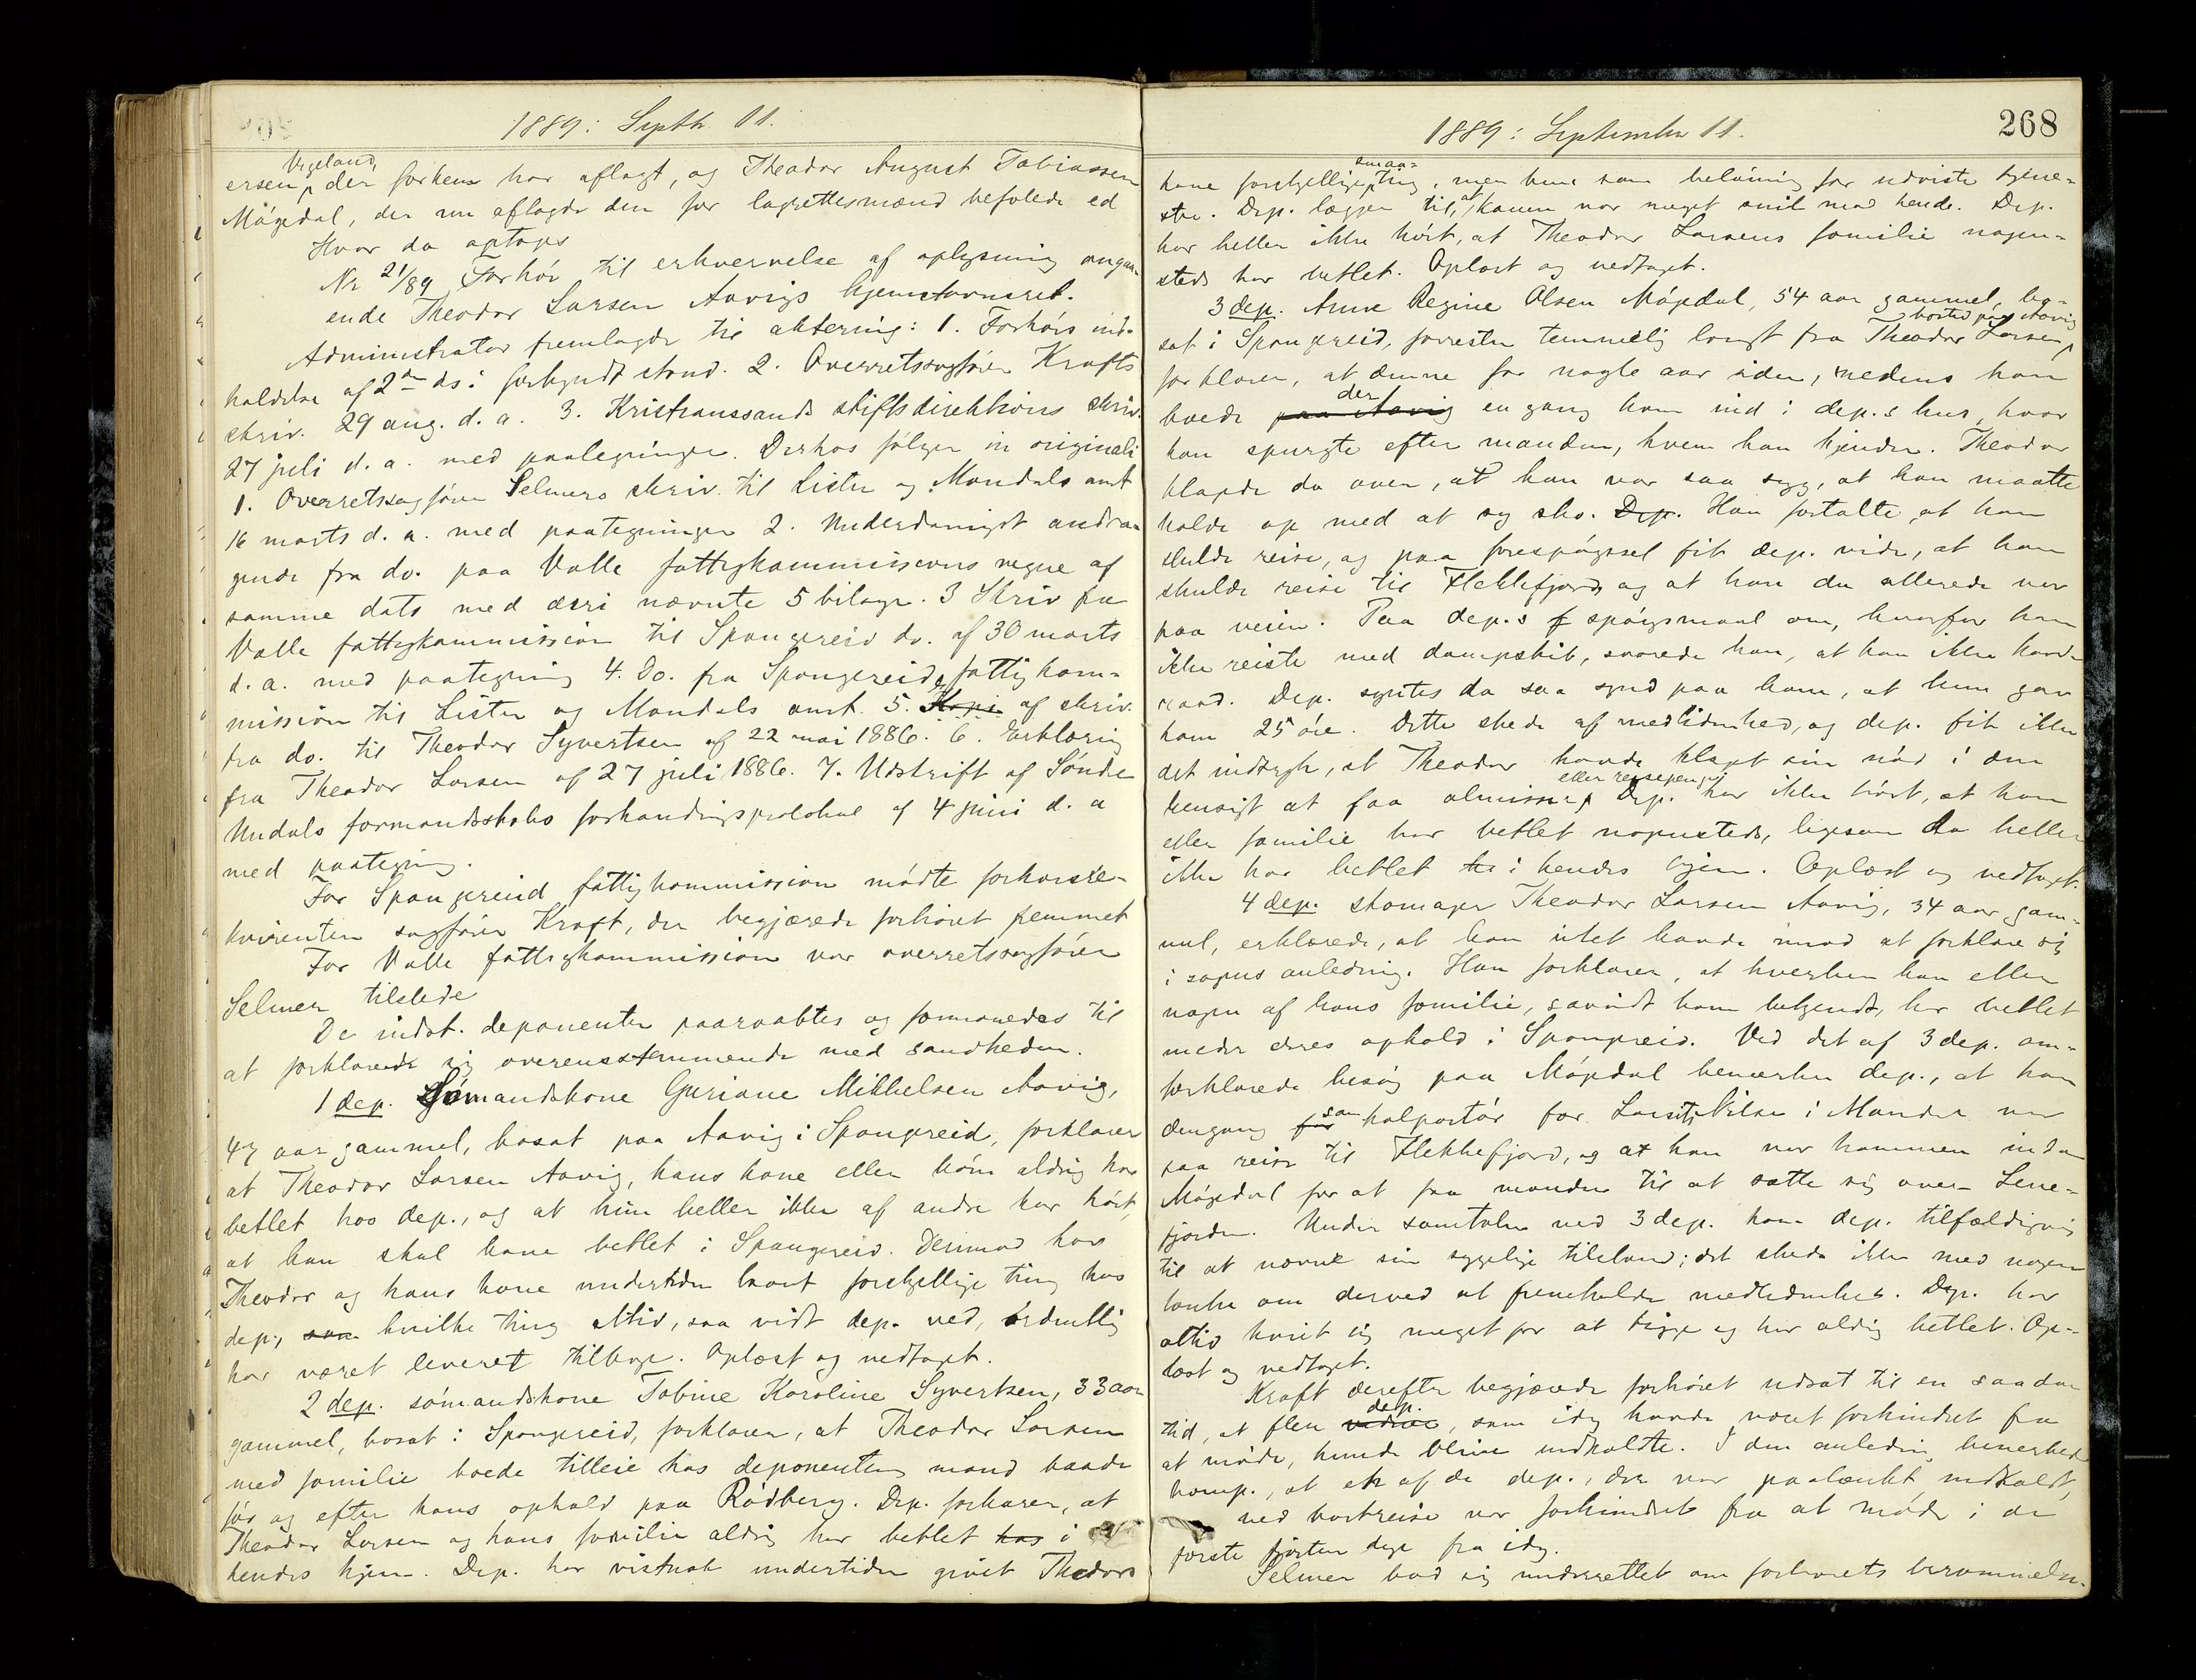 1889: Septbr 11.
Vigeland,
ersen, der forhen har aflagt, og Theodor August Tobiassen
Møgedal, der nu aflagde den for lagrettesmænd befalede ed
Hvor da optoges
Nr 21/89 Forhør til erhvervelse af oplysning angaa-
ende Theodor Larsen Aavigs hjemstavnsret.
Administrator fremlagde til aktering: 1. Forhørs ind-
kaldelse af 2den ds. i forkyndt stand. 2. Overretssagfører Krafts
skriv. 29 aug. d. a. 3. Kristianssands stiftsdirektions skriv.
27 juli d. a. med paategninger. Derhos følger in originali
1. Overretssagfører Selmers skriv. til Lister og Mandals amt
16 marts d. a. med paategninger 2. Underdanigst andra-
gende fra do. paa Valle fattigkommissions vegne af
samme dato med deri nævnte 5 bilage. 3 Skriv fra
Valle fattigkommission til Spangereid do. af 30 marts
d. a. med paategning 4. Do. fra Spangereids fattigkom-
mission til Lister og Mandals amt. 5. Kopi af skriv.
fra do. til Theodor Syvertsen af 22 mai 1886. 6. Erklæring
fra Theodor Larsen af 27 juli 1886. 7. Udskrift af Søndre
Undals formandsskabs forhandlingsprotokol af 4 juni d. a
med paategning.
For Spangereid fattigkommission mødte forhørsre-
kvirenten sagfører Kraft, der begjærede forhøret fremmet
For Valle fattigkommission var overretssagfører
Selmer tilstede
De indst. deponenter paaraabtes og formanedes til
at forklarede sig overensstemmende med sandheden.
1 dep. Sømandskone Guriane Mikkelsen Aavig,
47 aar gammel, bosat paa Aavig i Spangereid, forklarer
at Theodor Larsen Aavig, hans kone eller børn aldrig har
betlet hos dep., og at hun heller ikke af andre har hørt,
at han skal have betlet i Spangereid. Derimod har
Theodor og hans kone undertiden laant forskjellige ting hos
dep., som hvilke ting altid, saa vidt dep. ved, ordentlig
har været leveret tilbage. Oplæst og vedtaget.
2 dep. sømandskone Tobine Karoline Syvertsen, 33 aar
gammel, bosat i Spangereid, forklarer, at Theodor Larsen
med familie boede tilleie hos deponentens mand baade
før og efter hans ophold paa Rødberg. Dep. forklarer, at
Theodor Larsen og hans familie aldrig har betlet hos i
hendes hjem. Dep. har vistnok undertiden givet Theodors
1889: September 11.
268
smaa-
kone forskjellige ting, men kun som belønning for udviste tjene-
ster. Dep. lægger til, at konen var meget snil mod hende. Dep.
har heller ikke hørt, at Theodor Larsens familie nogen-
steds har betlet. Oplæst og vedtaget.
3 dep. Anne Regine Olsen Møgedal, 54 aar gammel, bo-
bosted paa Aavig
sat i Spangereid, forresten temmelig langt fra Theodor Larsens,
forklarer, at denne for nogle aar siden, medens han
der
boede paa Aavig en gang kom ind i dep.s hus, hvor
han spurgte efter manden, hvem han kjender. Theodor
klagede da over, at han var saa syg, at han maatte
holde op med at sy sko. Dep. Han fortalte, at han
skulde reise, og paa forespørgsel fik dep. vide, at han
skulde reise til Flekkefjord, og at han da allerede var
paa veien. Paa dep.s f spørgsmaal om, hvorfor han
ikke reiste med dampskib, svarede han, at han ikke havde
raad. Dep. syntes da saa synd paa ham, at hun gav
ham 25 øre. Dette skede af medlidenhed, og dep. fik ikke
det indtryk, at Theodor havde klaget sin nød i den
eller reisepenge
hensigt at faa almisse, Dep. har ikke hørt, at han
eller familie har betlet nogensteds, ligesom de heller
ikke har betlet i hendes hjem. Oplæst og vedtaget.
4 dep. skomager Theodor Larsen Aavig, 34 aar gam-
mel, erklærede, at han intet havde imod at forklare sig
i sagens anledning. Han forklarer, at hverken han eller
nogen af hans familie, savidt ham bekjendt, har betlet
under deres ophold i Spangereid. Ved det af 3 dep. om-
forklarede besøg paa Møgedal bemærker dep., at han
som
dengang for kolportør for Nilsen i Mandal var
paa reise til Flekkefjord, og at han var kommen ind
Møgedal for at faa manden til at sætte sig over Lene-
fjorden. Under samtalen med 3 dep. kom dep. tilfældigvis
til at nævne sin sygelige tilstand; det skede ikke med nogen
tanke om derved at fremkalde medlidenhed. Dep. har
altid kviet sig meget for at tigge og har aldrig betlet. Op-
læst og vedtaget.
Kraft derefter begjærede forhøret udsat til en saadan
dep.
tid, at flere vidner, som idag havde været forhindret fra
at møde, kunde blive indkaldte. I den anledning bemærkede
komp., at en af de dep., der var paatænkt indkaldt,
ved bortreise var forhindret fra at møde i de
første fjorten dage fra idag.
Selmer bad sig underrettet om forhørets berammelse.